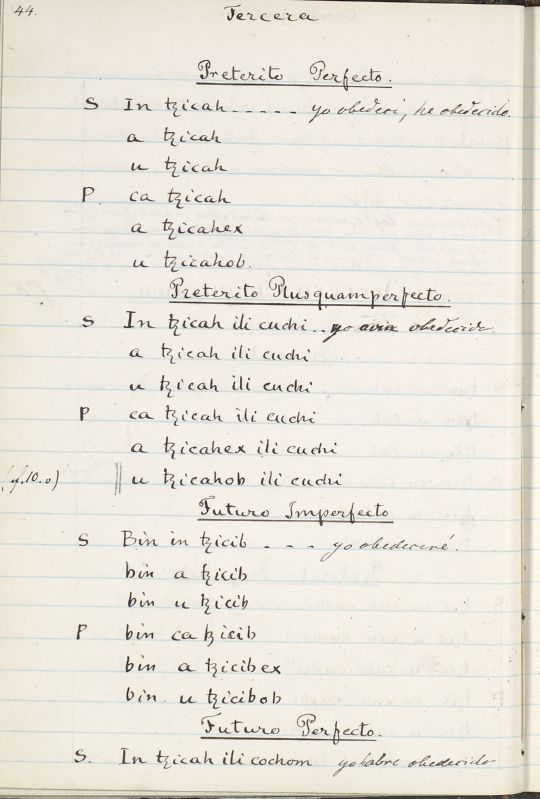 44.
Tercera
Preterito Perfecto.
S In tzicah ----- yo obedeci, he obedecido.
a tzicah
u tzicah
P. ca tzicah
a tzicahex
u tzicahob.
Preterito Plusquamperfecto.
S In tzicah ili cuchi .. yo avia obedecido.
a tzicah ili cuchi
u tzicah ili cuchi
P ca tzicah ili cuchi
a tzicahex ili cuchi
(f. 10. v) || u tzicahob ili cuchi
Futuro Imperfecto
S Bin in tzicib - - - yo obedeceré.
bin a tzicib
bin u tzicib
P bin ca tzicib
bin a tzicibex
bin u tzicibob
Futuro Perfecto.
S. In tzicah ili cochom yo habre obedecido